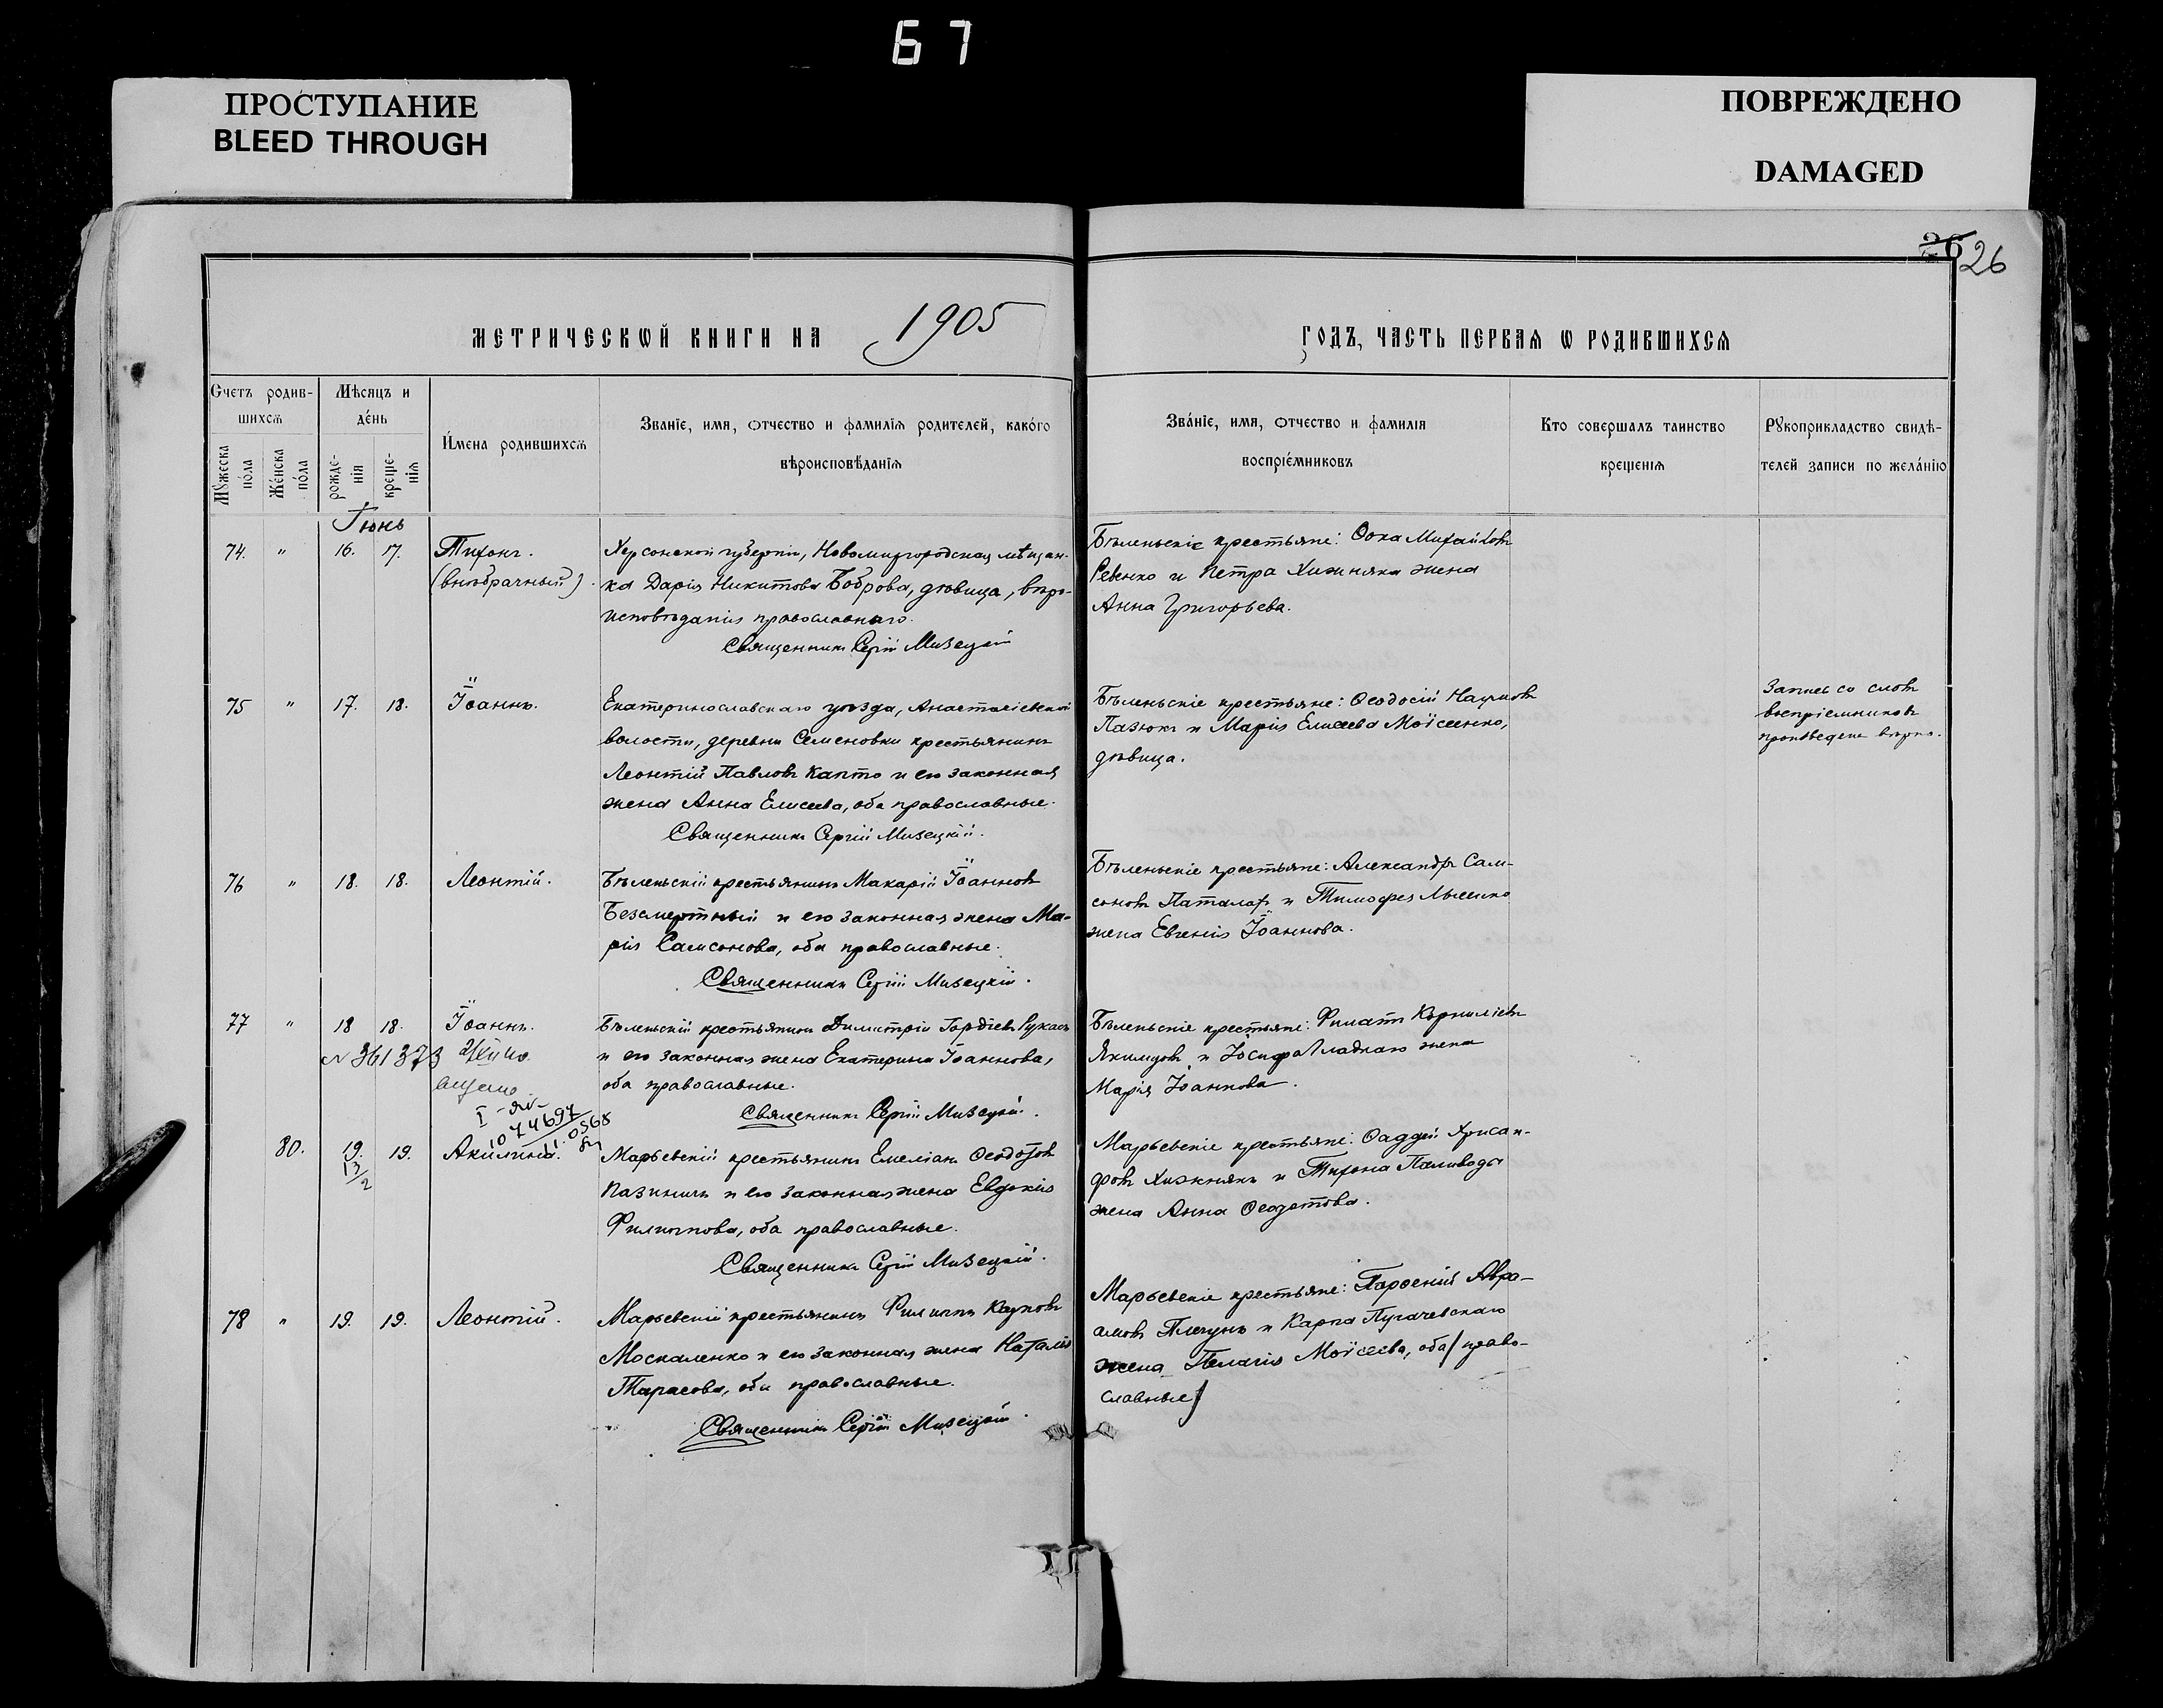 67
ПРОСТУПАНИЕ
BLEED THROUGH
ПОВРЕЖДЕНО
DAMAGED
26 26
МЕТРИЧЕСКѠЙ КНИГИ НА 1905 ГОДЪ, ЧАСТЬ ПЕРВАѦ Ѡ РОДИВШИХСѦ
Счетъ родив-
шихсѧ
Мꙋжеска пола
Женска пола
Мѣсяцъ и
день
рожде-
нія
креще-
нія
Имена родившихсѧ
Званіе, имя, ѻтчество и фамилїѧ родителей, какого
вѣроисповѣданїѧ
Званїе, имя, ѻтчество и фамилїя
воспрїемниковъ
Кто совершалъ таинство
крещенїѧ
Рꙋкоприкладство свидѣ-
телей записи по желанїю
Іюнь
74. " 16. 17. Тихонъ.
(внѣбрачный).
Херсонской губерніи, Новомиргородская мѣщан-
ка Дарія Никитова Боброва, дѣвица, вѣро-
исповѣданія православнаго.
Священникъ Сергій Мизецкій
Бѣленьскіе крестьяне: Ѳока Михайловъ
Ревенко и Петра Хижняка жена
Анна Григорьева.
75 " 17. 18. Іоаннъ.
Екатеринославскаго уѣзда, Анастасіевской
волости, деревни Семеновки крестьянинъ
Леонтій Павловъ Капто и его законная
жена Анна Елисеева, оба православные.
Священникъ Сергій Мизецкій.
Бѣленьскіе крестьяне: Ѳеодосій Наумовъ
Пазюкъ и Марія Елисеева Моісеенко,
дѣвица.
Запись со словъ
воспріемниковъ
произведена вѣрно.
76 " 18. 18. Леонтій.
Бѣленьскій крестьянинъ Макарій Іоанновъ
Безсмертный и его законная жена Ма-
рія Самсонова, оба православные.
Священникъ Сергій Мизецкій.
Бѣленьскіе крестьяне: Александръ Сам-
соновъ Паталах и Тимоѳея
жена Евгенія Іоаннова.
77 " 18 18. Іоаннъ.
N 361373
I
1074697
11.0568
Бѣленьскій крестьянинъ Димитрій Гордіевъ
и его законная жена Екатерина Іоаннова,
оба православные.
Священникъ Сергій Мизецкій.
Бѣленьскіе крестьяне: Филатъ Корниліевъ
Якимцовъ и Іосифа Гладкаго жена
Марія Іоаннова.
80. 19. 19. Акилина.
13/2
Марьевскій крестьянинъ Емеліанъ Ѳеодотовъ
и его законная жена Евдокія
Филиппова, оба православные.
Священникъ Сергій Мизецкій.
Марьевскіе крестьяне: Ѳаддей Хрисан-
ѳовъ Хижнякъ и Тихона Паливоды
жена Анна Ѳеодотова.
78 " 19. 19. Леонтій.
Марьевскій крестьянинъ Филиппъ Карповъ
Москаленко и его законная жена Наталія
Тарасова, оба православные.
Священникъ Сергій Мизецкій.
Марьевскіе крестьяне: Парѳеній Авра-
амовъ Плечунъ и Карпа Пугачевскаго
жена Пелагія Моісеева, оба (право-
славные)